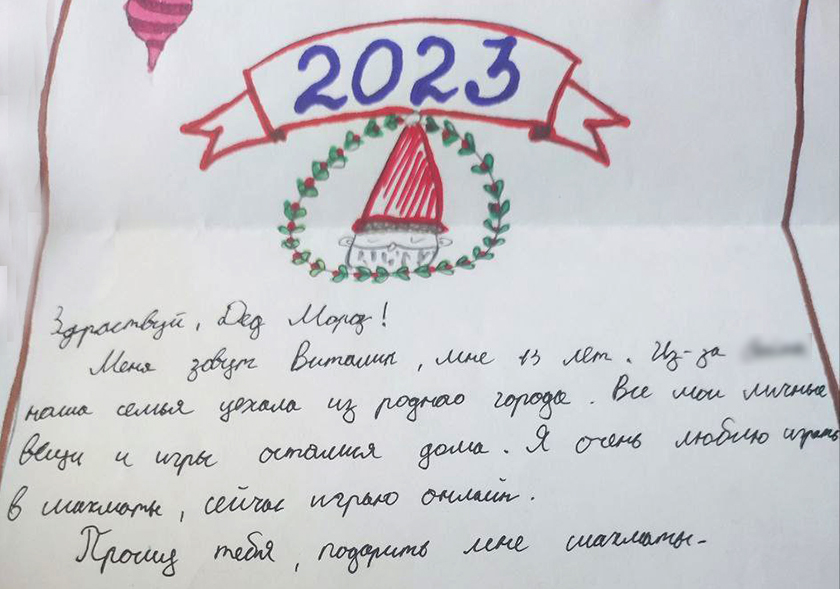 2023
Здраствуй, Дед Мороз!
Меня зовут Виталик, мне 13 лет. Из-за
наша семья уехала из роднао города. Все мои личные
вещи и игры остались дома. Я очень люблю играть
в шахматы, сейчас играю онлайн.
Прошу тебя, подарить мне шахматы.